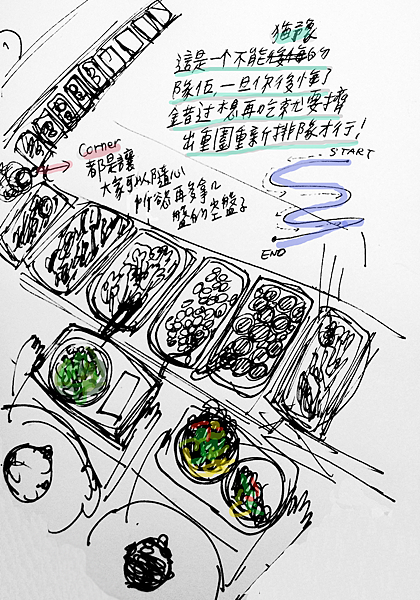 猶豫
這是一个不能後悔的
隊伍一旦你後悔了
錯过想再吃就要擠
出重圍重新排隊才行！
START
Corner
都是讓
大家可以隨心
所欲再多拿几
盤的空盤子
END